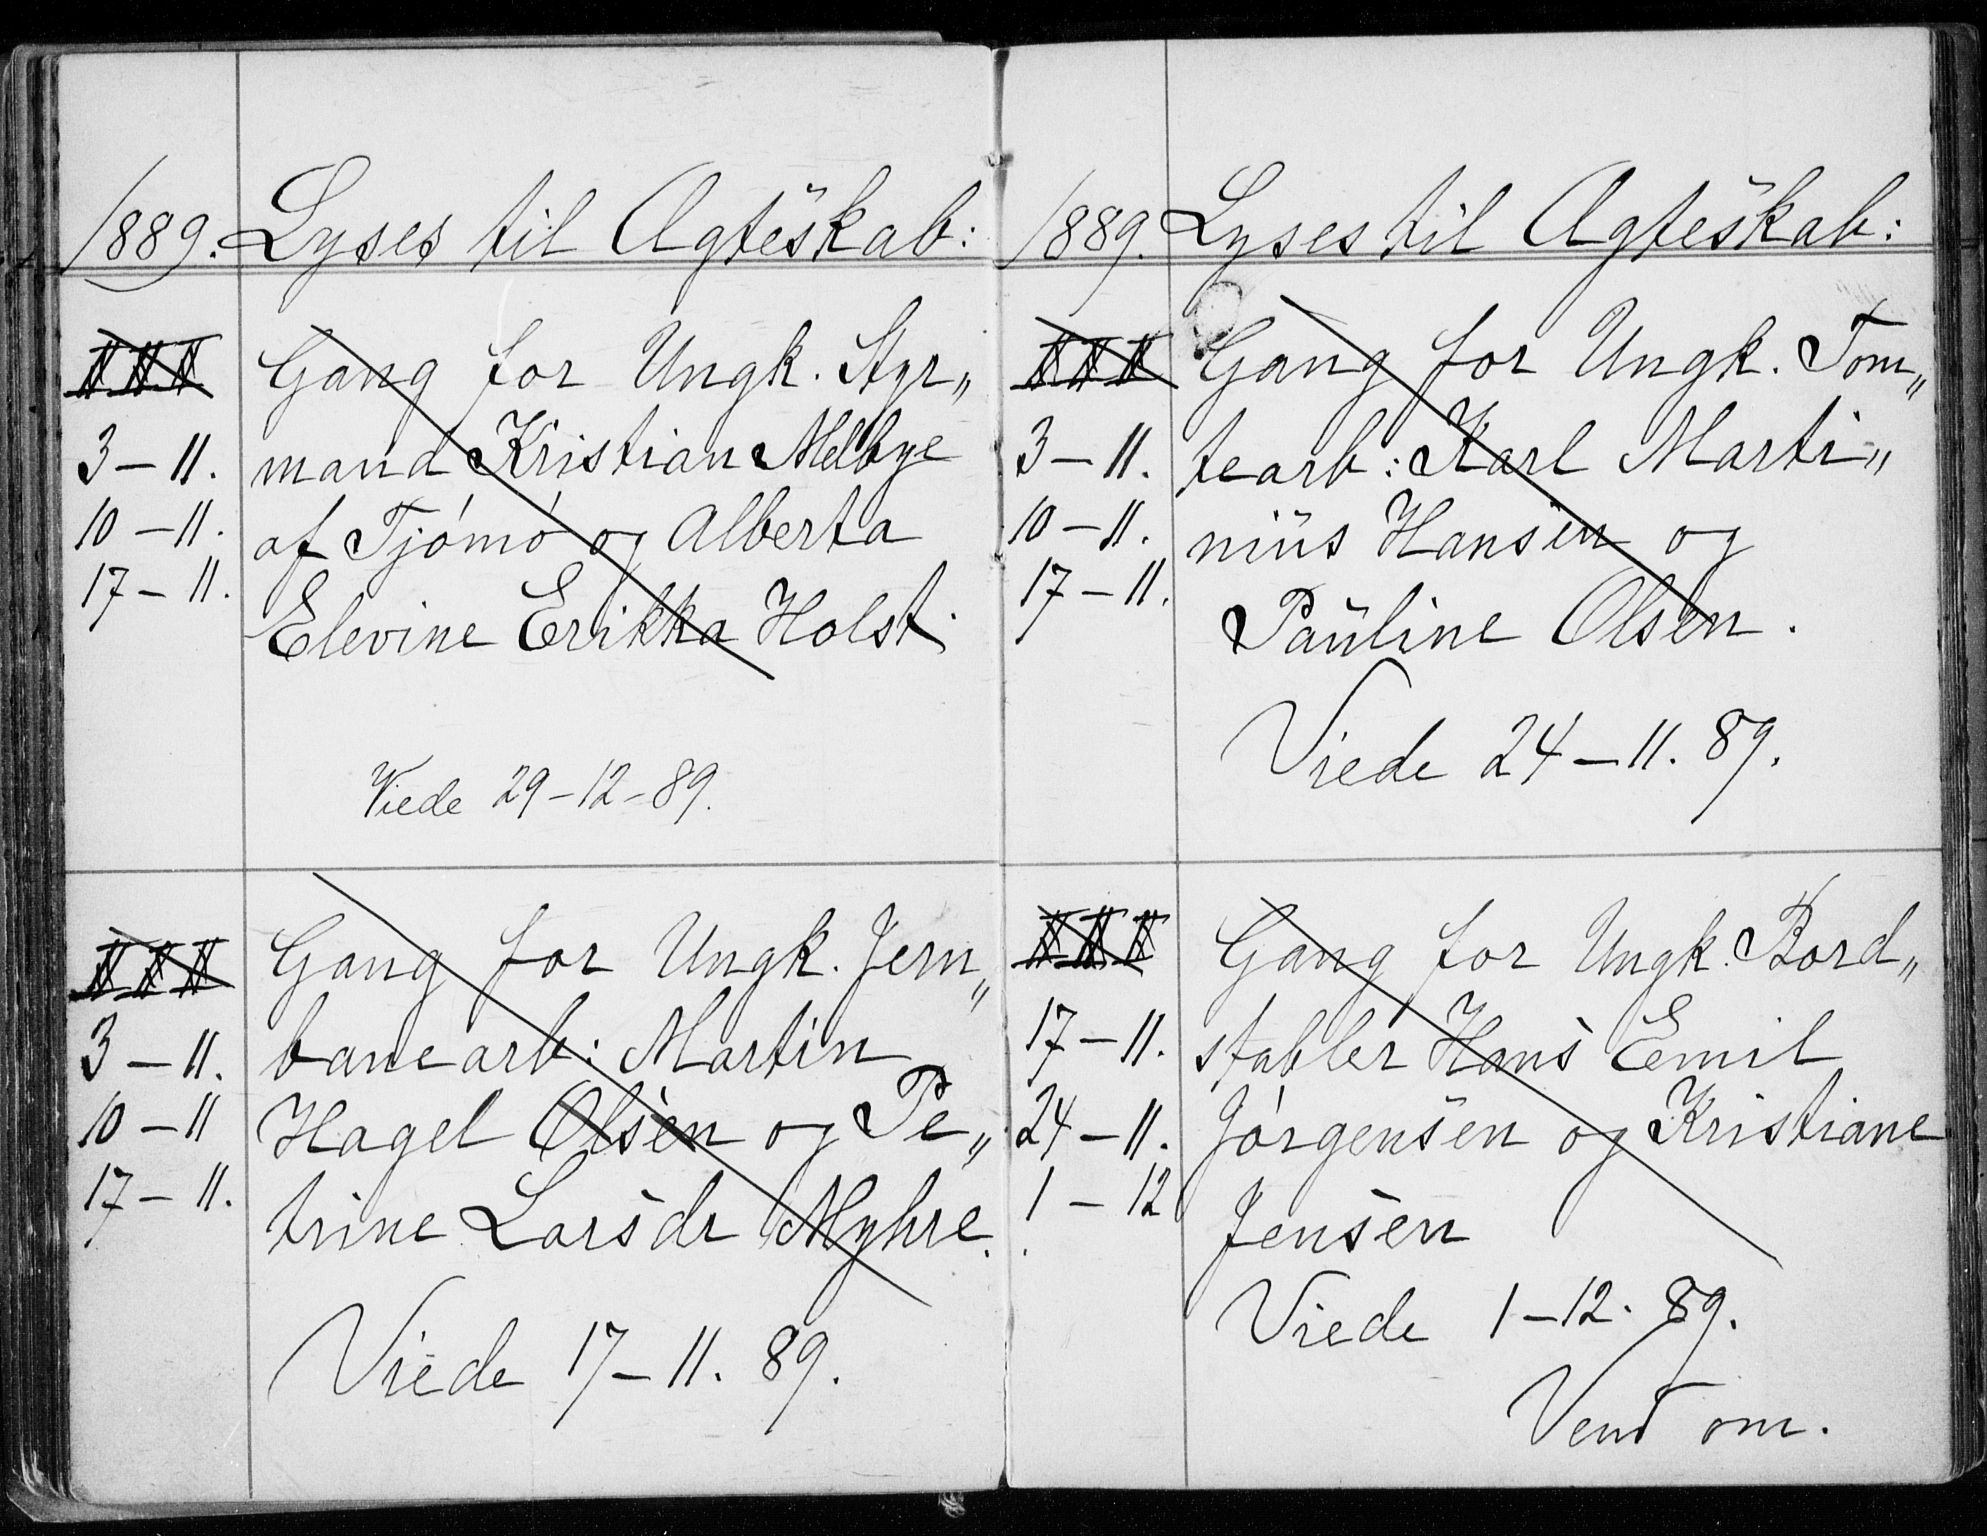 1889. Lyses til Agteskab:
III Gang for Ungk. Styr„
3–11. mand Kristian Melbye
10–11. af Tjómó og Alberta
17–11. Elevine Erikka Holst.
Viede 29–12–89.
III Gang for Ungk. Jern„
3–11. banearb: Martin
10–11 Hagel Olsen og Pe„
17–11. trine Larsdr Myhre.
Viede 17–11. 89.
1889. Lyses til Agteskab:
III Gang for Ungk. Tom„
3–11. tearb: Karl Marti„
10–11. nius Hansen og
17–11. Pauline Olsen.
Viede 24–11. 89.
III Gang for Ungk. Bord„
17–11. stabler Hans Emil
24–11. Jórgensen og Kristiane
1–12 Jensen
Viede 1–12. 89.
Vend om.